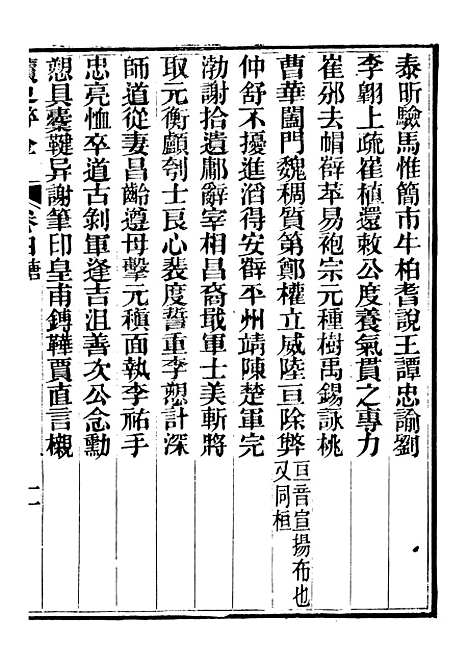 泰昕驗馬惟簡市牛柏耆說王譚忠諭劉
李翺上疏崔植還敕公度養氣貫之專力
崔邠去帽辥苹易袍宗元種樹禹錫詠桃
曹華闔門魏稠質第鄭權立威陸亘除弊亘音宣揚布也
又同桓
仲舒不擾進滔得安辥平州靖陳楚軍完
渤謝拾遺鄘辭宰相昌裔戢軍士美斬將
取元衡顱刳士良心裴度誓重李愬計深
師道從妻昌齡遵母擊元穆面執李祐手
忠亮恤卒道古剝軍逢吉沮善次公念勳
愬具櫜鞬异謝筆印皇甫鎛鞾賈直言櫬
卷四 唐
二